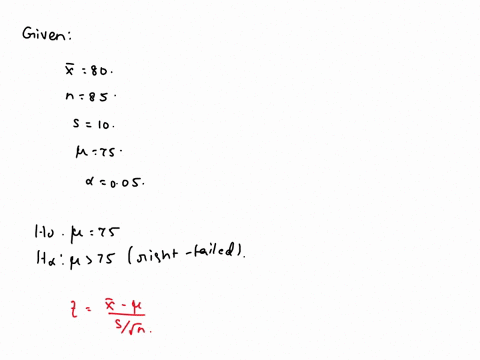 Given:
x̄ = 80.
n = 85.
s = 10.
μ = 75.
α = 0.05.
H0. μ = 75
Hα: μ > 75 (right-tailed).
z = x̄ - μ / s/√n.